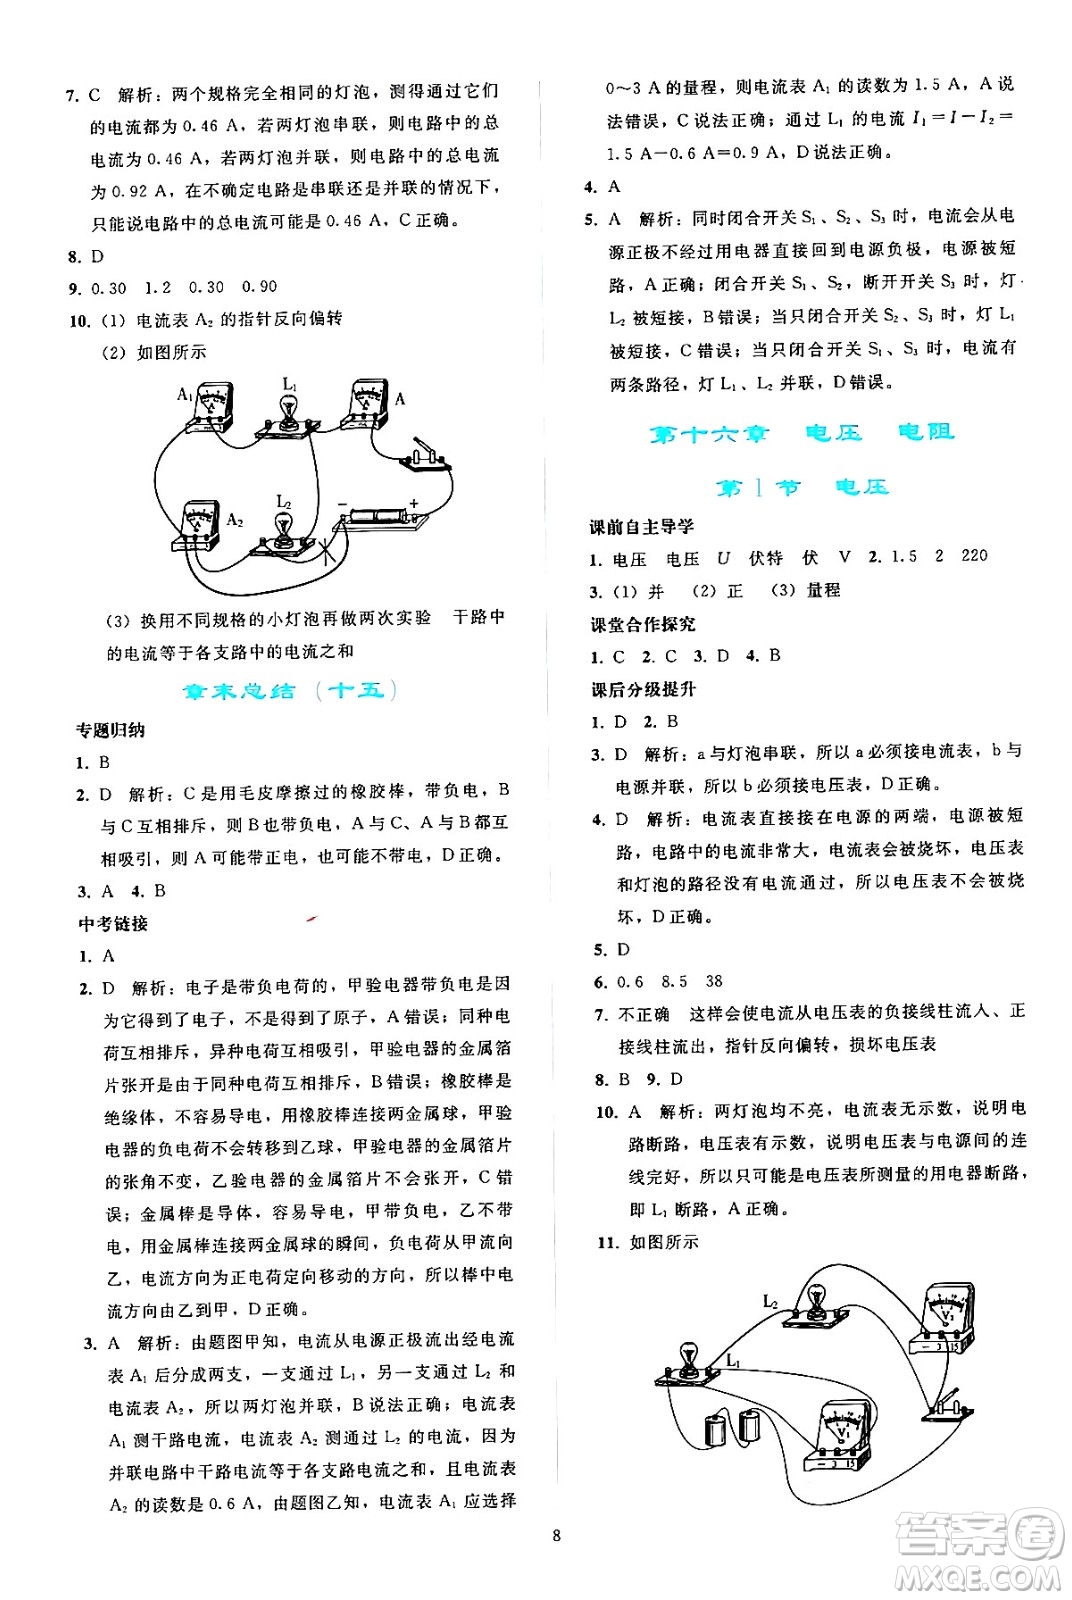 7. C　解析:两个规格完全相同的灯泡,测得通过它们
的电流都为 0.46 A,若两灯泡串联,则电路中的总
电流为 0.46 A,若两灯泡并联,则电路中的总电流
为 0.92 A,在不确定电路是串联还是并联的情况下,
只能说电路中的总电流可能是 0.46 A,C正确。
8. D
9. 0.30　1.2　0.30　0.90
10. (1) 电流表 A₂ 的指针反向偏转
(2) 如图所示
A₁
L₁
A
A₂
L₂
−
+
(3) 换用不同规格的小灯泡再做两次实验　干路中
的电流等于各支路中的电流之和
章末总结（十五）
专题归纳
1. B
2. D　解析:C是用毛皮摩擦过的橡胶棒，带负电，B
与C互相排斥，则B也带负电，A与C、A与B都互
相吸引，则A可能带正电，也可能不带电，D正确。
3. A　4. B
中考链接
1. A
2. D　解析:电子是带负电荷的,甲验电器带负电是因
为它得到了电子,不是得到了原子,A错误;同种电
荷互相排斥,异种电荷互相吸引,甲验电器的金属箔
片张开是由于同种电荷互相排斥,B错误;橡胶棒是
绝缘体,不容易导电,用橡胶棒连接两金属球,甲验
电器的负电荷不会转移到乙球,甲验电器金属箔片
的张角不变,乙验电器的金属箔片不会张开,C错
误;金属棒是导体,容易导电,甲带负电,乙不带
电,用金属棒连接两金属球的瞬间,负电荷从甲流向
乙,电流方向为正电荷定向移动的方向,所以棒中电
流方向由乙到甲,D正确。
3. A　解析:由题图甲知,电流从电源正极流出经电流
表 A₁ 后分成两支,一支通过 L₁,另一支通过 L₂ 和
电流表 A₂,所以两灯泡并联,B说法正确;电流表
A₁ 测干路电流,电流表 A₂ 测通过 L₂ 的电流,由于
并联电路中干路电流等于各支路电流之和,且电流表
A₂ 的读数是 0.6 A,由题图乙知,电流表 A₁ 应选择
0～3 A 的量程,则电流表 A₁ 的读数为 1.5 A,A说
法错误,C说法正确;通过 L₁ 的电流 I₁=I−I₂=
1.5 A−0.6 A=0.9 A,D说法正确。
4. A
5. A　解析:同时闭合开关 S₁、S₂、S₃ 时,电流会从电
源正极不经过用电器直接回到电源负极,电源被短
路,A正确;闭合开关 S₁、S₂,断开开关 S₃ 时,灯
L₂ 被短接,B错误;当只闭合开关 S₂、S₃ 时,灯 L₁
被短接,C错误;当只闭合开关 S₁、S₃ 时,电流有
两条路径,灯 L₁、L₂ 并联,D错误。
第十六章　电压　电阻
第 1 节　电压
课前自主导学
1. 电压　电压　U　伏特　伏　V　2. 1.5　2　220
3. (1) 并　(2) 正　(3) 量程
课堂合作探究
1. C　2. C　3. D　4. D
课后分级提升
1. D　2. B
3. D　解析:a与灯泡串联,所以a必须接电流表,b与
电源并联,所以b必须接电压表,D正确。
4. D　解析:电流表直接接在电源的两端,电源被短
路,电路中的电流非常大,电流表会被烧坏,电压表
和灯泡的路径没有电流通过,所以电压表不会被烧
坏,D正确。
5. D
6. 0.6　8.5　38
7. 不正确　这样会使电流从电压表的负接线柱流入、正
接线柱流出,指针反向偏转,损坏电压表
8. B　9. D
10. A　解析:两灯泡均不亮,电流表无示数,说明电
路断路,电压表有示数,说明电压表与电源间的连
线完好,所以只可能是电压表所测量的用电器断路,
即 L₁ 断路,A正确。
11. 如图所示
L₂
V₂
− 3 15
L₁
V₁
− 3 15
8
答案圈
MXQE.COM